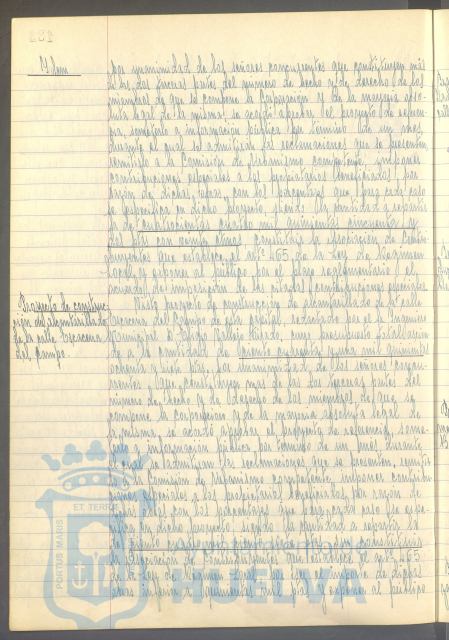 Idem
por unanimidad de los señores concurrentes que constituyen más
de las dos terceras partes del número de hecho y de derecho de los
miembros de que se compone la Corporación y de la mayoría abso-
luta legal de la misma, se acordó aprobar el proyecto de referen-
cia, someterlo a información pública por término de un mes,
durante el cual se admitirán las reclamaciones que se presenten,
remitirlo a la Comisión de Urbanismo competente, imponer
contribuciones especiales a los propietarios beneficiados, por
razón de dichas obras, con los porcentajes que para cada caso
se especifica en dicho proyecto, siendo la cantidad a repartir
de cuatrocientas cuatro mil quinientas cincuenta y
dos ptas con
constituir la Asociación de Contri-
buyentes que establece el artº 465 de la Ley de Régimen
Local, y exponer al público por el plazo reglamentario el
acuerdo de imposición de las citadas contribuciones especiales
Proyecto de construc-
ción de alcantarillado
de la calle Escacena
del Campo.
Visto proyecto de construcción de alcantarillado de la calle
Escacena del Campo de esta capital, redactado por el Sr. Ingeniero
Municipal D.
cuyo presupuesto total ascien-
de a la cantidad de ciento cuarenta y una mil quinientas
ochenta y siete ptas, por unanimidad de los señores concu-
rrentes que constituyen más de las dos terceras partes del
número de hecho y de derecho de los miembros de que se
compone la Corporación y de la mayoría absoluta legal de
la misma, se acordó aprobar el proyecto de referencia, some-
terlo a información pública por término de un mes, durante
el cual se admitirán las reclamaciones que se presenten, remitir-
lo a Comisión de Urbanismo competente, imponer contribu-
ciones especiales a los propietarios beneficiados por razón de
dichas obras con los porcentajes que para cada caso se espe-
cifica en dicho proyecto, siendo la cantidad a repartir la
de ciento
constituir
la Asociación de Contribuyentes que establece el artº 465
de la Ley de Régimen Local
el importe de dichas
obras
a quinientas mil ptas y exponer al público
PORTUS MARIS
ET TERRAE
HUELVA